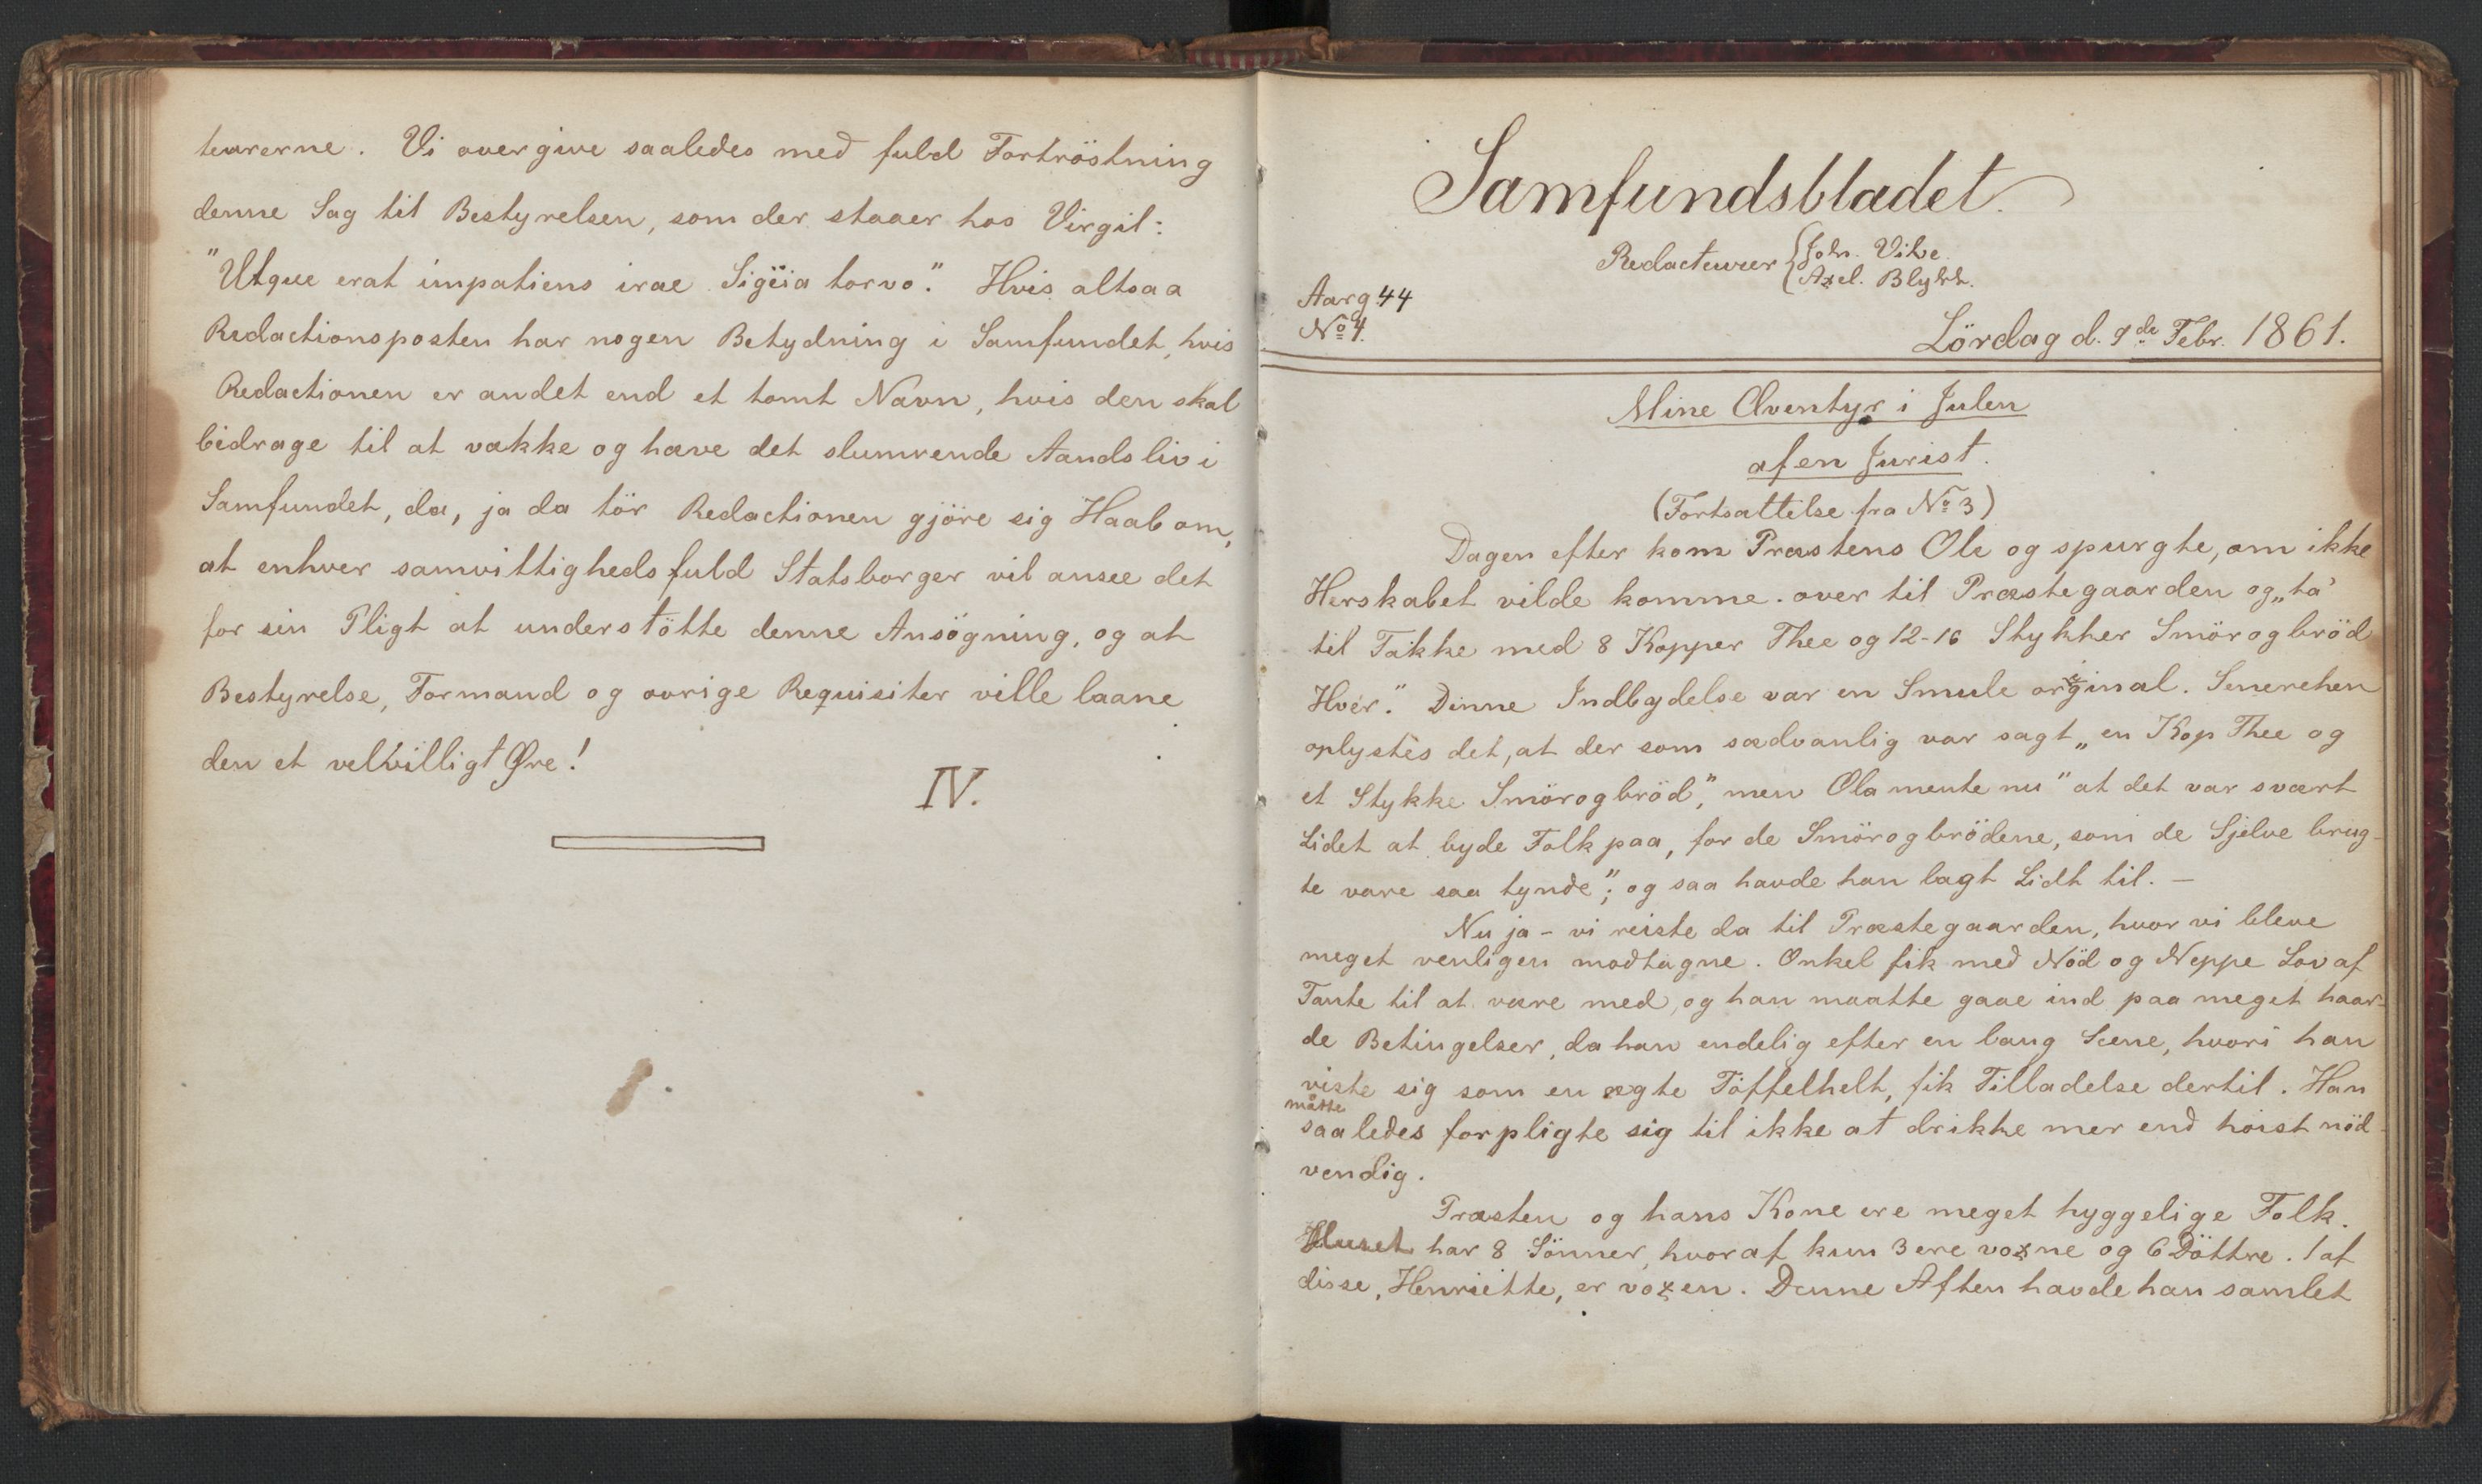 teurerne. Vi overgive saaledes med fuld Fortröstning
denne Sag til Bestyrelsen, som der staaer hos Virgil:
"Utque erat impatiens irae Sigëia torvo." Hvis altsaa
Redactionsposten har nogen Betydning i Samfundet, hvis
Redactionen er andet end et tomt Navn, hvis den skal
bidrage til at vække og hæve det slumrende Aandsliv i
Samfundet, da, ja da tör Redactionen gjöre sig Haab om,
at enhver samvittighedsfuld Statsborger vil ansee det
for sin Pligt at understötte denne Ansögning, og at
Bestyrelse, Formand og ovrige Requisiter ville laane
den et velvilligt Øre!
IV.
Samfundsbladet.
Redacteurer { Joh. Vibe.
Axel. Blytt.
Aarg 44
No 4.
Lördag d. 9de Febr. 1861.
Mine Æventyr i Julen
af en Jurist.
(Fortsættelse fra No 3)
Dagen efter kom Præstens Ole og spurgte, om ikke
Herskabet vilde komme over til Præstegaarden og „ta'
til Takke med 8 Kopper Thee og 12-16 Stykker Smörogbröd
Hver." Dinne Indbydelse var en Smule original. Senerehen
oplystes det, at der som sædvanlig var sagt „en Kop Thee og
et Stykke Smörogbröd," men Ola mente nu "at det var svært
Lidet at byde Folk paa, for de Smörogbrödene, som de Sjelve brug-
te vare saa tynde"; og saa havde han lagt Lidt til. —
Nu ja - vi reiste da til Præstegaarden, hvor vi bleve
meget venligen modtagne. Onkel fik med Nöd og Neppe Lov af
Tante til at være med, og han maatte gaae ind paa meget haar-
de Betingelser, da han endelig efter en lang Scene, hvori han
viste sig som en ægte Töffelhelt, fik Tilladelse dertil. Han
måtte
saaledes forpligte sig til ikke at drikke mer end höist nöd-
vendig.
Præsten og hans Kone ere meget hyggelige Folk.
Huset har 8 Sönner, hvoraf kun 3 ere voxne og 6 Döttre. 1 af
disse, Henriette, er voxen. Denne Aften havde han samlet